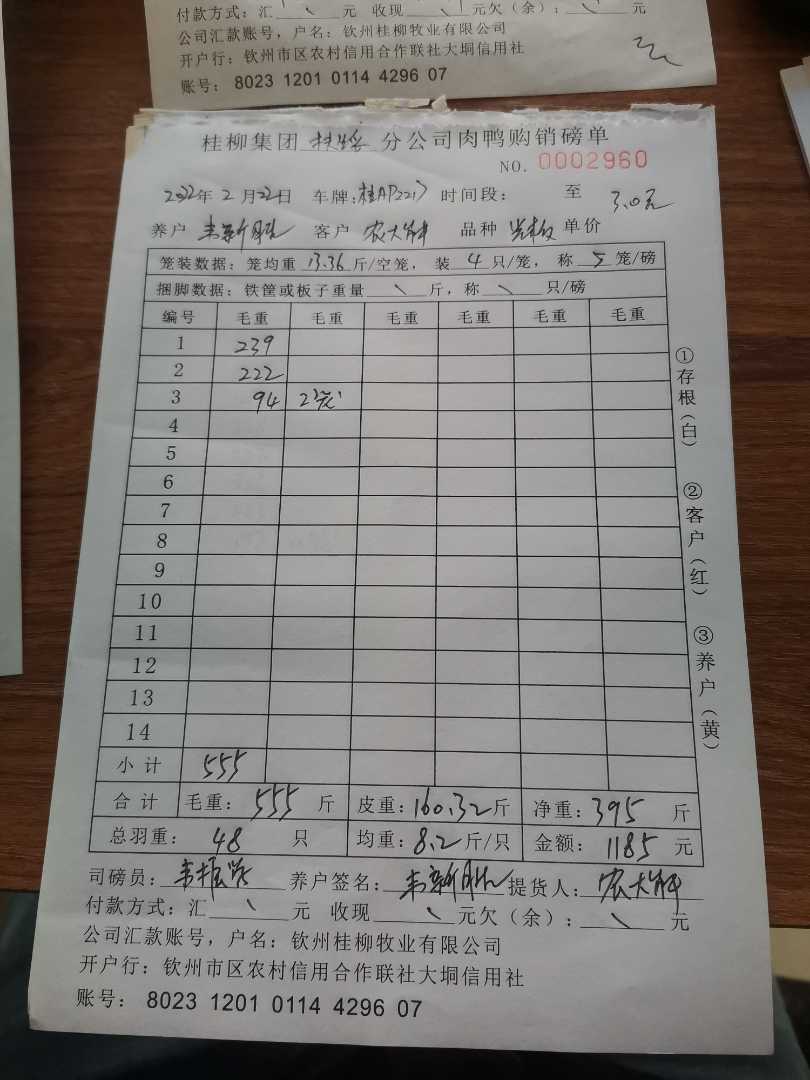 付款方式：汇 \ 元 收现 \ 元欠（余）：\ 元
公司汇款账号，户名：钦州桂柳牧业有限公司
开户行：钦州市区农村信用合作联社大垌信用社
账号：8023 1201 0114 4296 07
桂柳集团扶绥分公司肉鸭购销磅单
NO. 0002960
2022年2月22日 车牌：桂AP2217 时间段： 至 3.0元
养户 韦新 客户 农大 品种 单价
笼装数据：笼均重 13.36 斤/空笼，装 4 只/笼，称 5 笼/磅
捆脚数据：铁筐或板子重量 \ 斤，称 \ 只/磅
编号 毛重 毛重 毛重 毛重 毛重 毛重
1 239
2 222
3 94 2笼
4
5
6
7
8
9
10
11
12
13
14
小计 555
合计 毛重：555 斤 皮重：160.32斤 净重：395 斤
总羽重：48 只 均重：8.2斤/只 金额：1185 元
司磅员：韦振 养户签名：韦新 提货人：农大
付款方式：汇 \ 元 收现 \ 元欠（余）：\ 元
公司汇款账号，户名：钦州桂柳牧业有限公司
开户行：钦州市区农村信用合作联社大垌信用社
账号：8023 1201 0114 4296 07
①存根（白）
②客户（红）
③养户（黄）